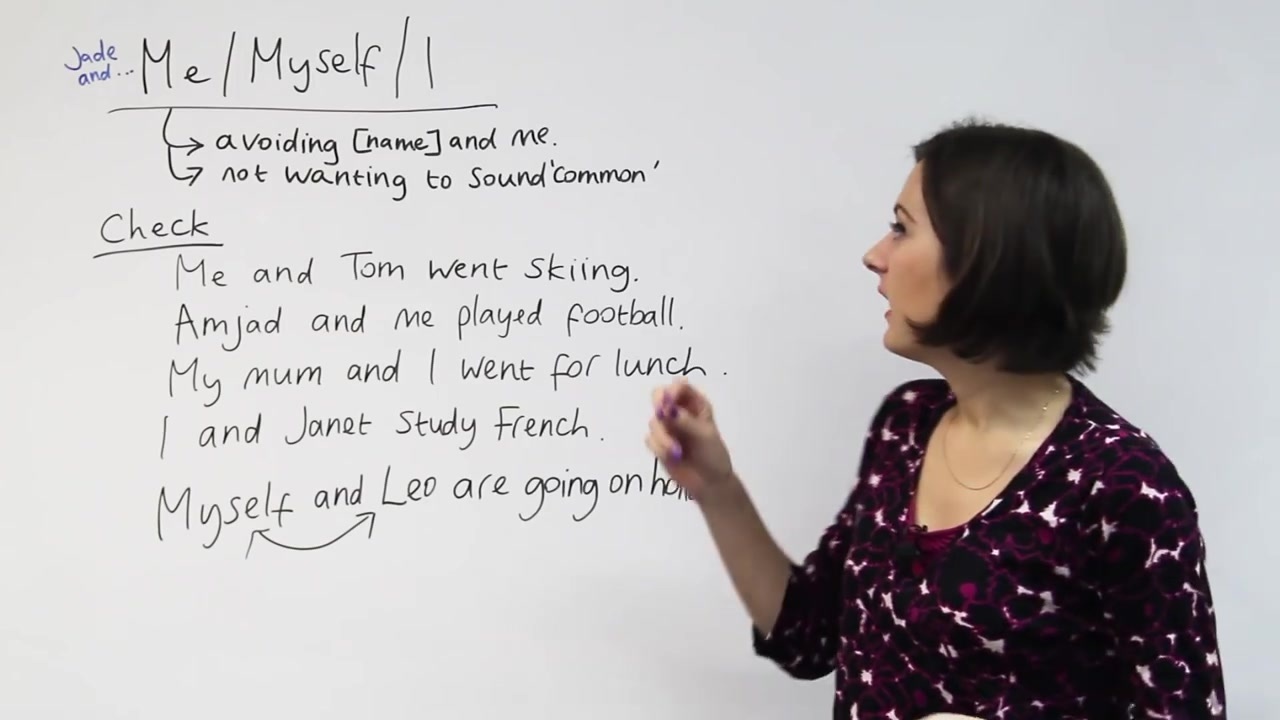 Jade
and...
Me/Myself/I
avoiding [name] and me.
not wanting to sound 'common'
Check
Me and Tom went skiing.
Amjad and me played football.
My mum and I went for lunch.
I and Janet study French.
Myself and Leo are going on